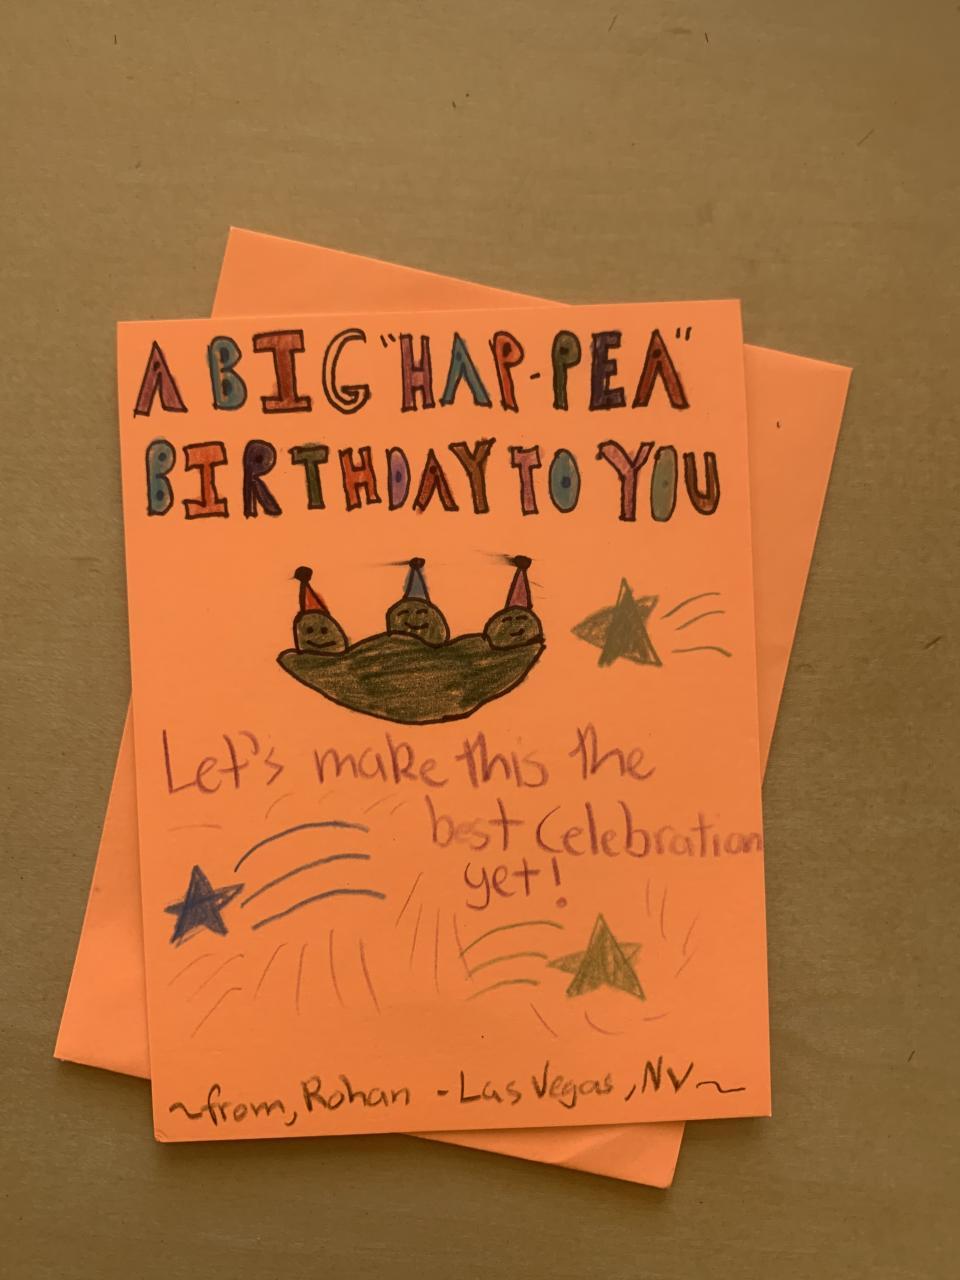 A BIG "HAP-PEA"
BIRTHDAY TO YOU
Let's make this the
best Celebration
yet!
~from, Rohan - Las Vegas, NV~